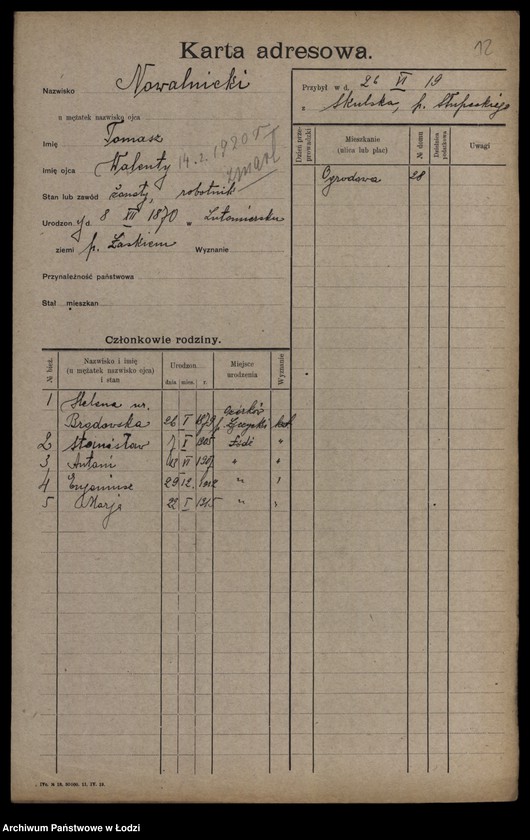 12
Karta adresowa.
Nazwisko Nowalnicki
u mężatek nazwisko ojca
Imię Tomasz
Imię ojca Walenty 14.2.1920 r zmarł
Stan lub zawód żonaty, robotnik
Urodzon y d. 8 VII 1870 w Lutomiersku
ziemi p. Łaskiem Wyznanie
Przynależność państwowa
Stał mieszkan
Przybył w d. 26 VI 19
z Skulska, p. Słupeckiego
Dzień przeprowadzki
Mieszkanie (ulica lub plac)
№ domu
Dzielnica podatkowa
Uwagi
Ogrodowa 28
Członkowie rodziny.
№ bież.
Nazwisko i imię (u mężatek nazwisko ojca) i stan
Urodzon.
dnia mies. r.
Miejsce urodzenia
Wyznanie
1 Helena ur. Ozorków
Brzdowska 26 I 1879 p. Łęczycki kat
2 Stanisław I 1905 Łódź "
3 Antoni VI 190 " "
4 Eugeniusz 29 12. 1912 " "
5 Marja 22 I 1915 " "
Archiwum Państwowe w Łodzi